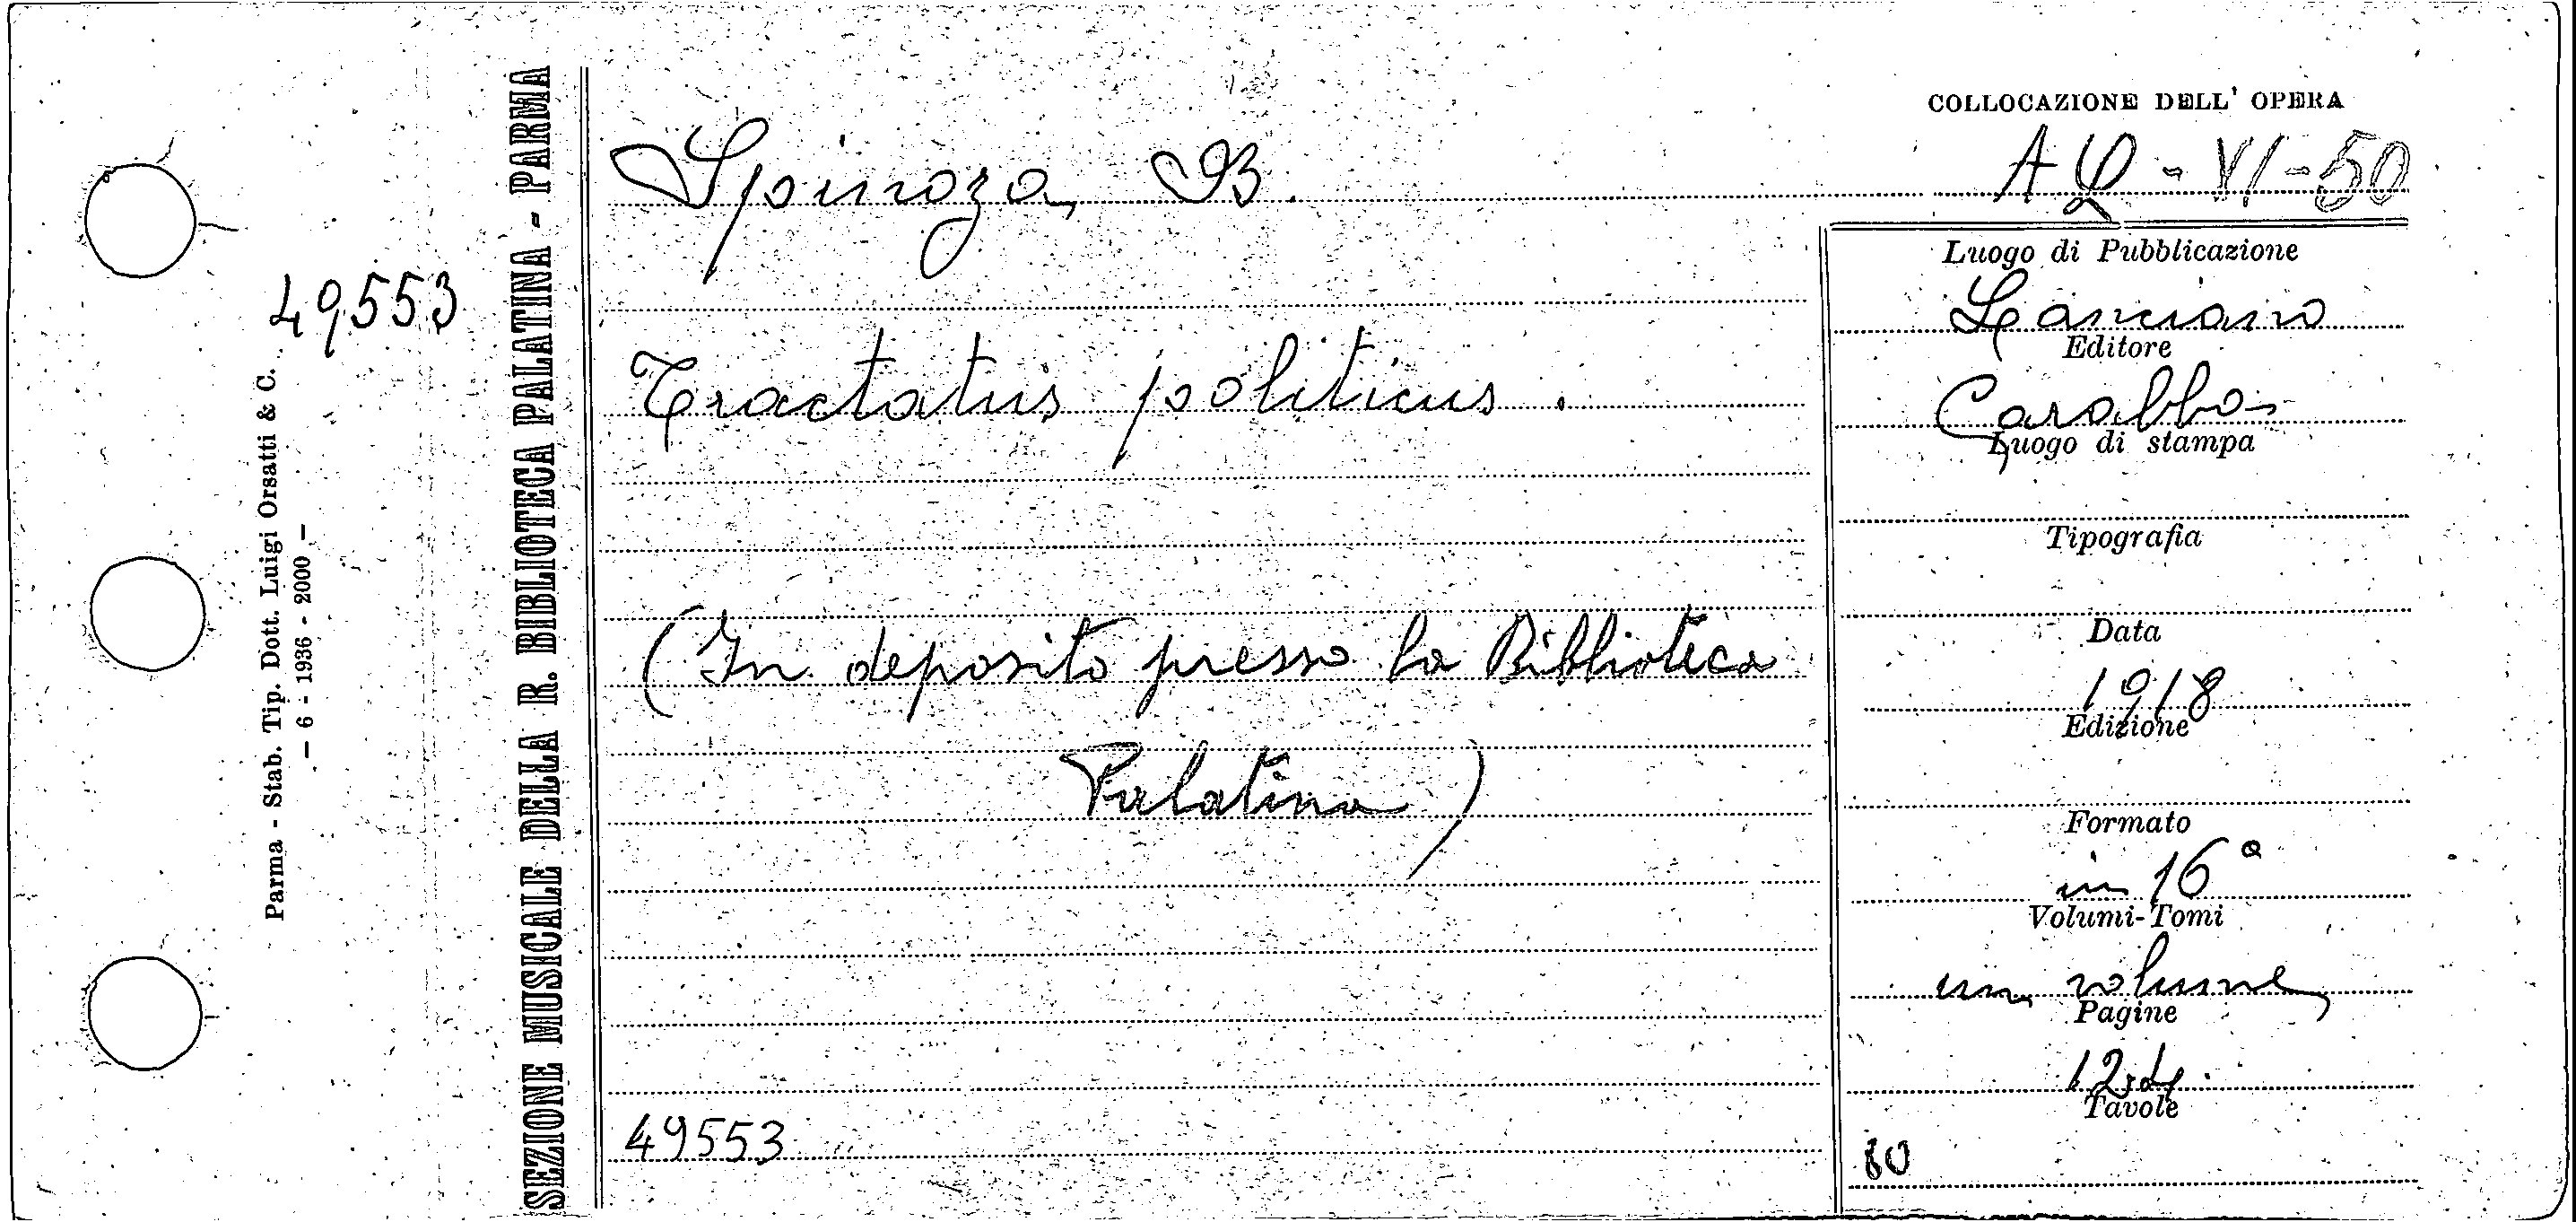 49553
Parma - Stab. Tip. Dott. Luigi Orsatti & C.
— 6 - 1936 - 2000 —
SEZIONE MUSICALE DELLA R. BIBLIOTECA PALATINA - PARMA
Spinoza, B.
Tractatus politicus.
(In deposito presso la Biblioteca
Palatina)
49553
COLLOCAZIONE DELL' OPERA
VI-50
Luogo di Pubblicazione
Lanciano
Editore
Carabba
Luogo di stampa
Tipografia
Data
1918
Edizione
Formato
in 16°
Volumi-Tomi
un volume
Pagine
Tavole